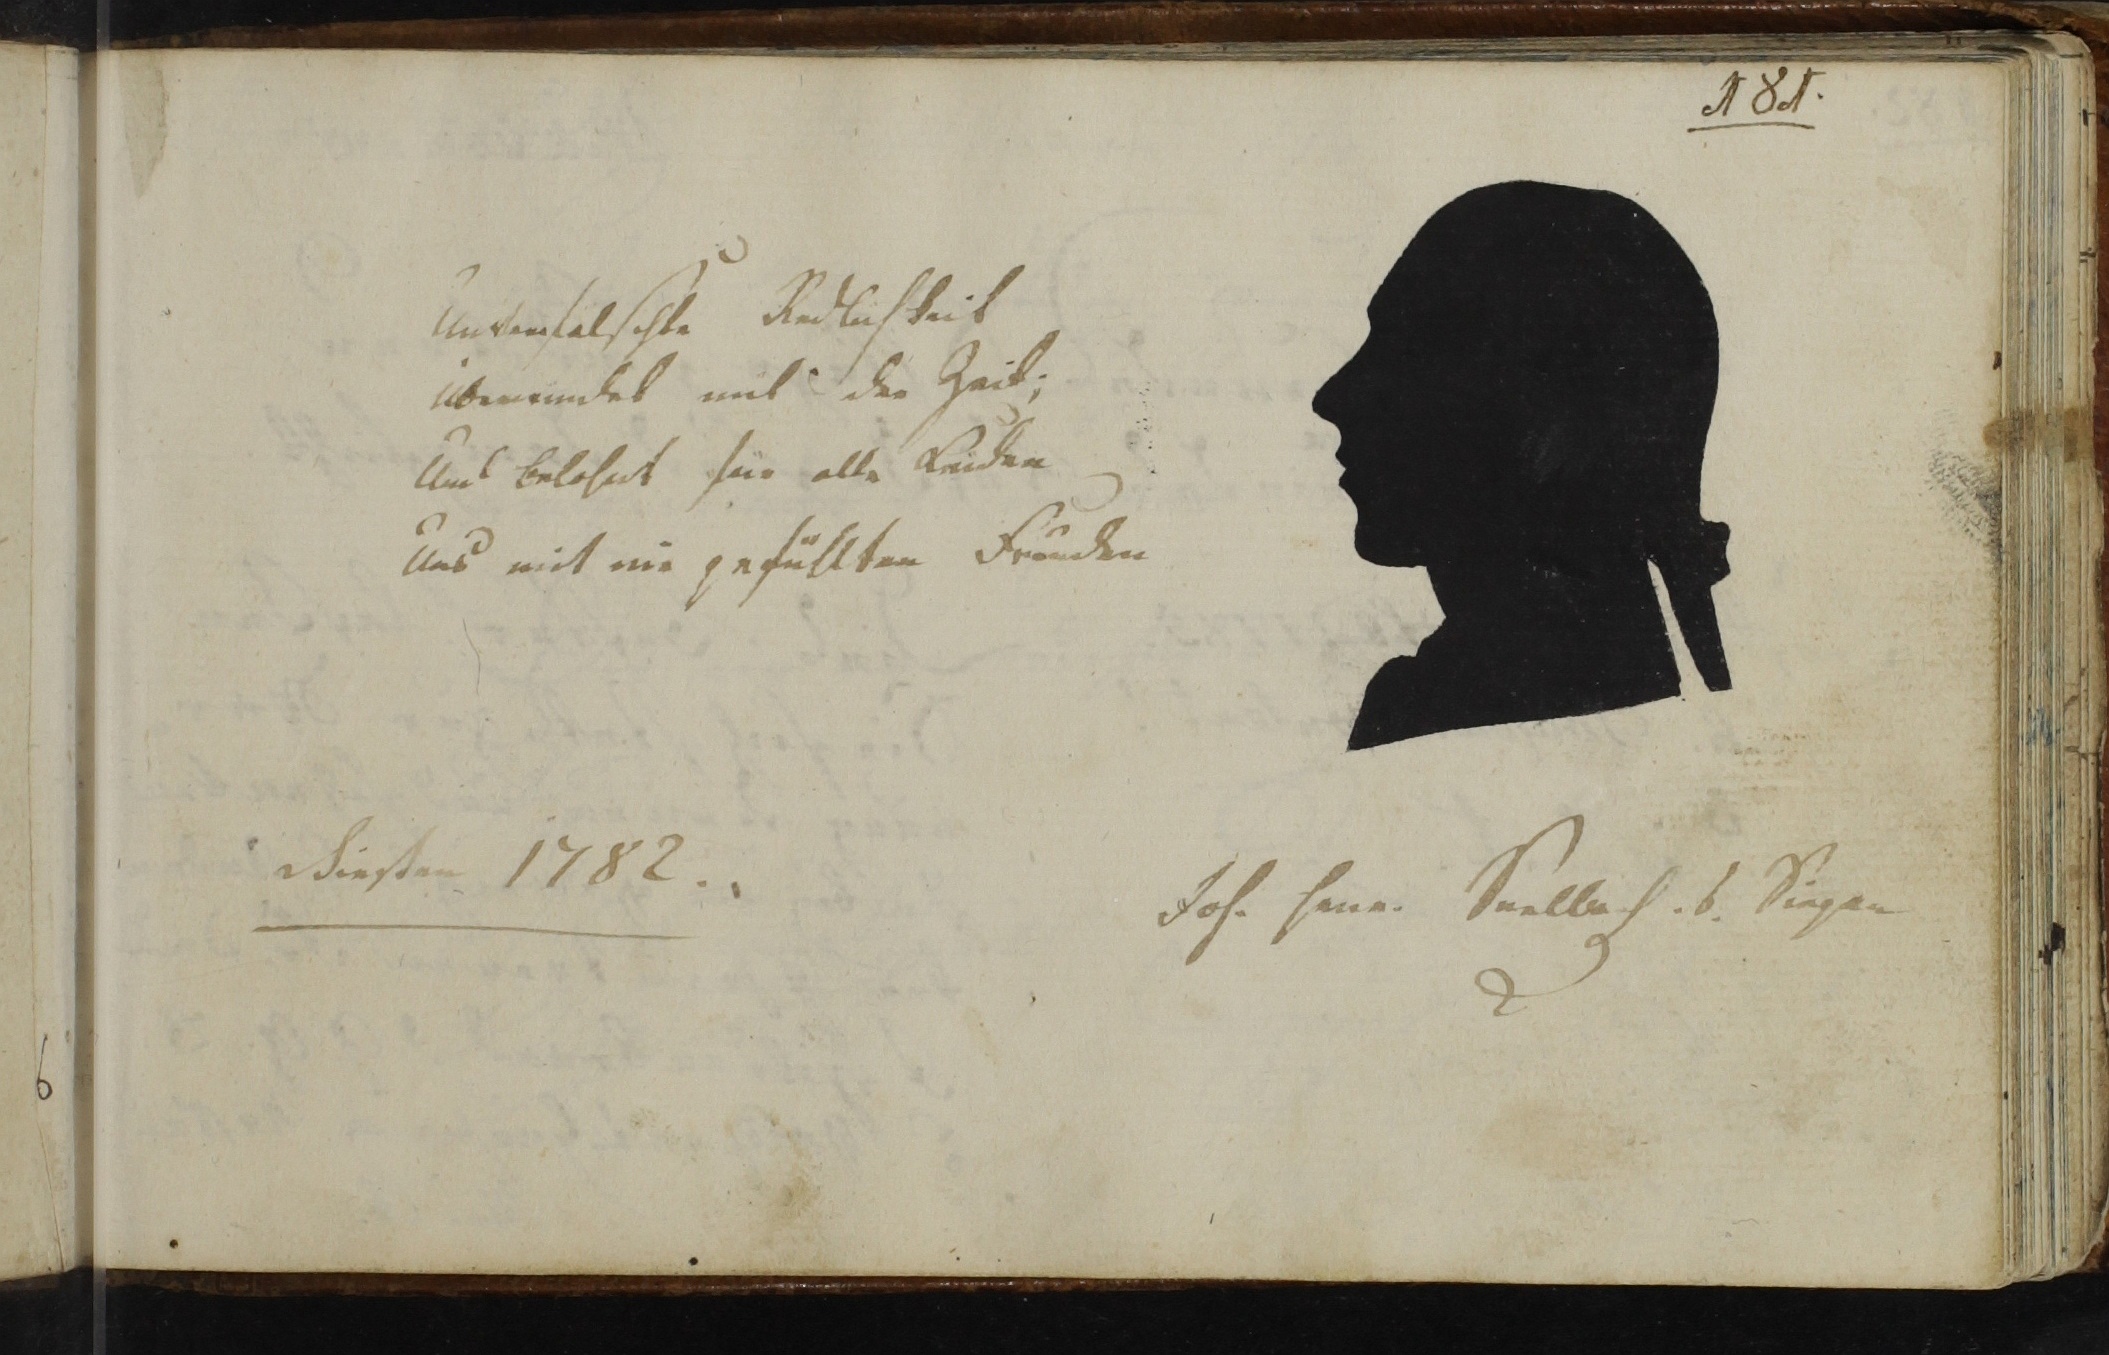 181.
Unverfälschte Redlichkeit
Überwindet mit der Zeit;
Und belohnt für alle Leiden
Uns mit nie gefühlten Freuden
Giessen 1782.
Joh. Henr. Snellbach . Siegen
6